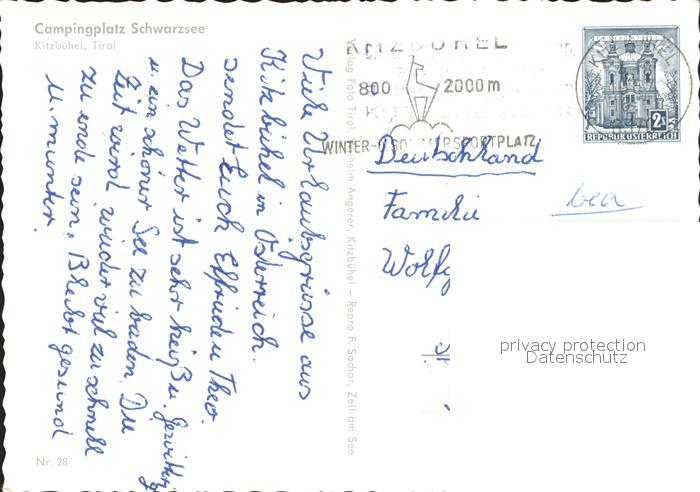 Campingplatz Schwarzsee
Kitzbühel, Tirol
Viele Urlaubsgrüsse aus
Kitzbühel in Österreich.
sendet Euch Elfriede u. Theo.
Das Wetter ist sehr heiß u. Gewitter
u. ein schöner See zu baden. Die
Zeit wird wieder viel zu schnell
zu ende sein. Bleibt gesund
u. munter.
Nr. 28
Verlag Foto Tirol, Wilhelm Angerer, Kitzbühel – Repro F. Sochor, Zell am See
KITZBÜHEL
800 2000 m
WINTER-U. SOMMERSPORTPLATZ
KITZBÜHEL
2 S
REPUBLIK ÖSTERREICH
Deutschland
Familie
Wolfg
privacy protection
Datenschutz